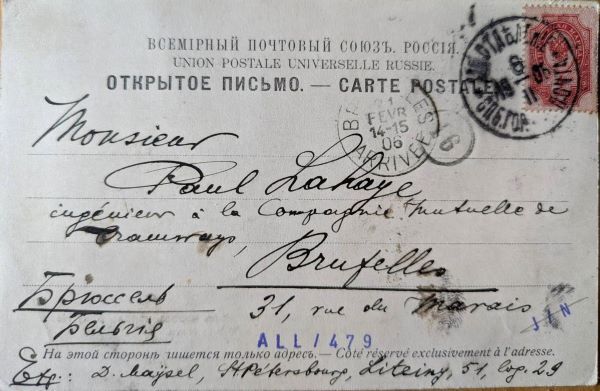 ВСЕМІРНЫЙ ПОЧТОВЫЙ СОЮЗЪ. РОССІЯ.
UNION POSTALE UNIVERSELLE RUSSIE.
ОТКРЫТОЕ ПИСЬМО. — CARTE POSTALE
21
FEVR
14-15
06
ARRIVÉE
6
Monsieur
Paul Lahaye
ingénieur à la Compagnie Mutuelle de
Tramways,
Bruxelles
31, rue du Marais
Брюссель
Бельгія
J/N
ALL/479
На этой сторонѣ пишется только адресъ. — Côté réservé exclusivement à l'adresse.
D. Maysel, St Petersbourg, Liteiny, 51, log. 29